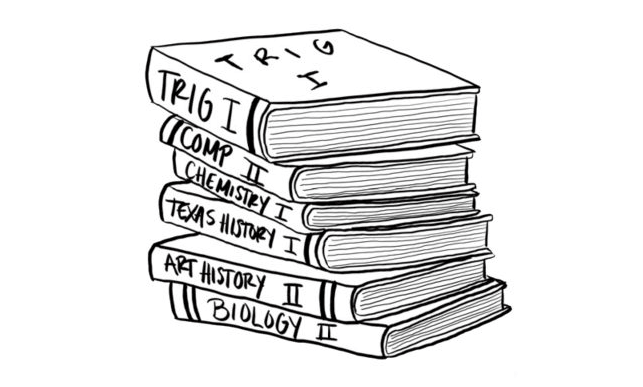 TRIG
I
TRIG I
COMP II
CHEMISTRY I
TEXAS HISTORY I
ART HISTORY II
BIOLOGY II